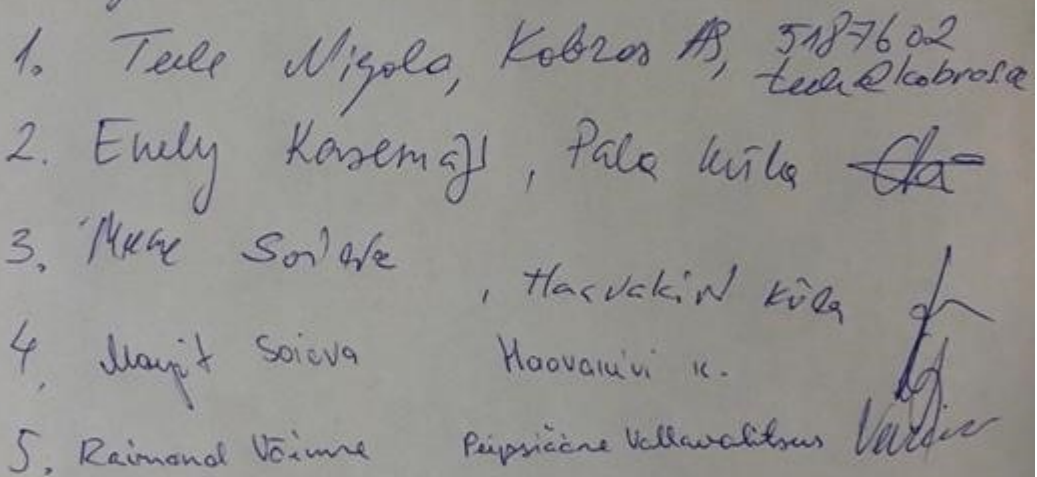 1. Teele Nigola, Kobras AS, 5187602
teele@kobras.ee
2. Enely Kasemägi, Pala küla
3. Soieva, Haavakivi küla
4. Margit Soieva Haavakivi k.
5. Raimond Võimre Peipsiääre Vallavalitsus